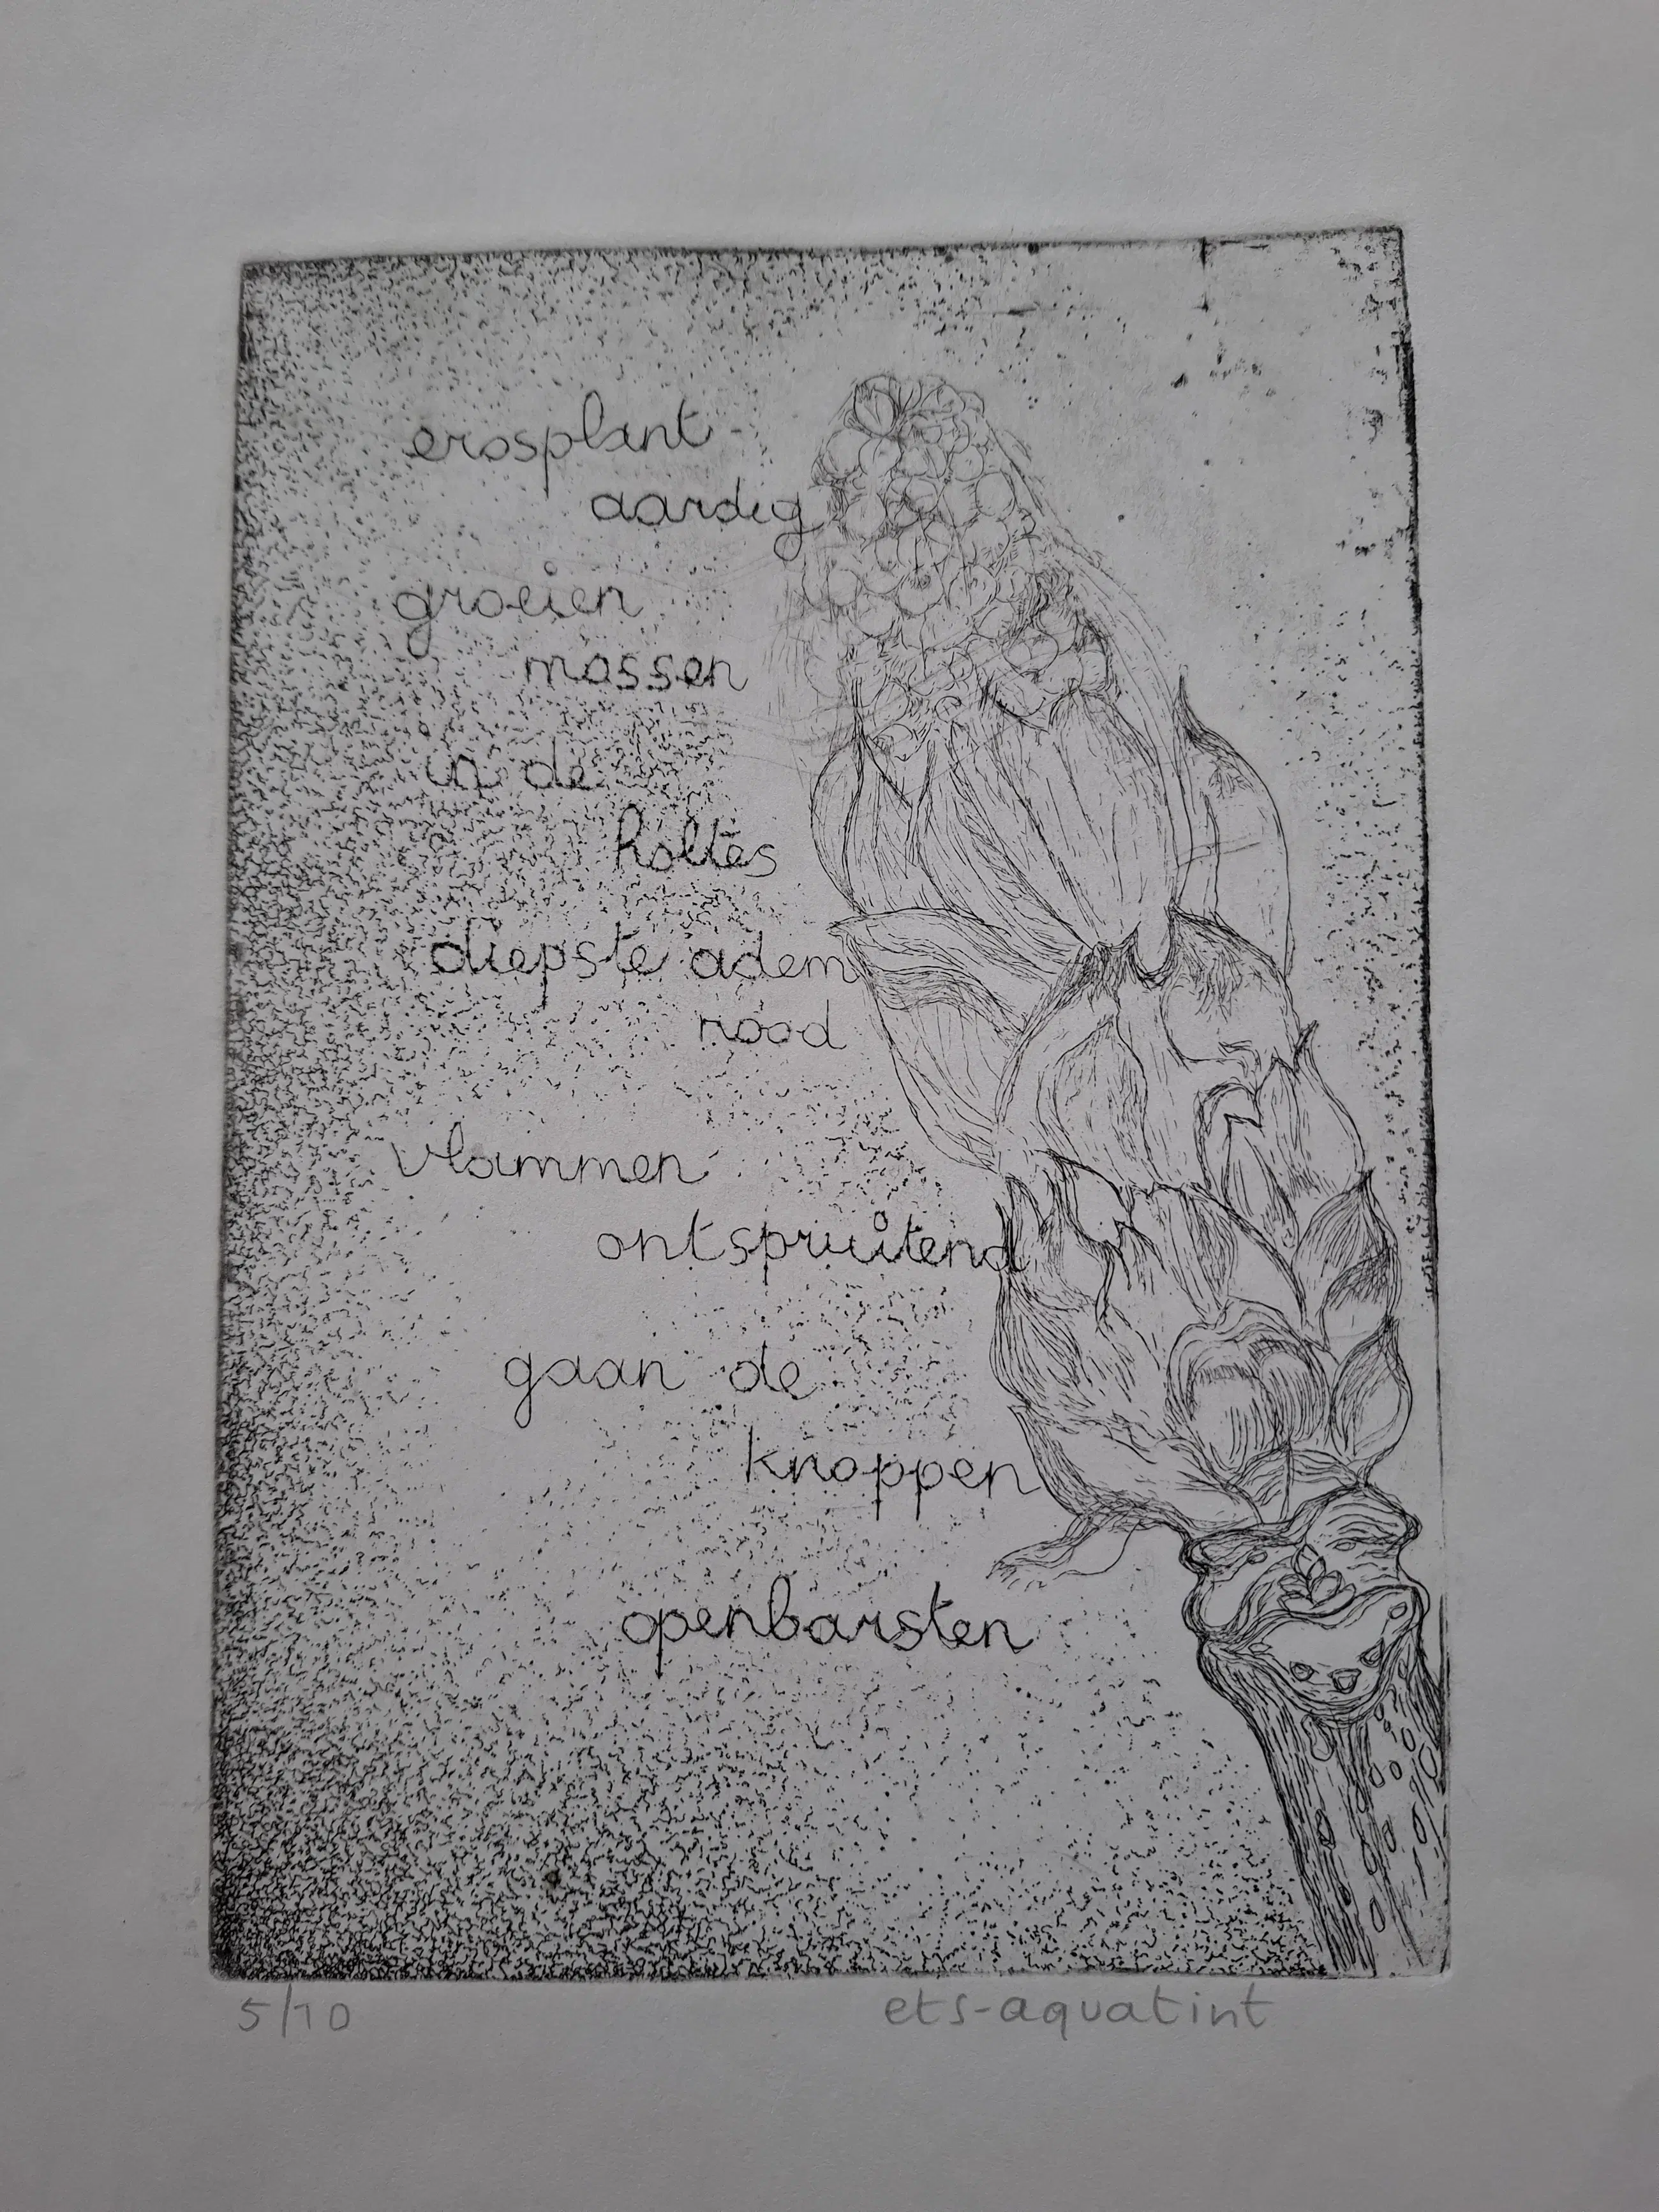 erosplant
aardig
groeien
mossen
in de
holtes
diepste adem
nood
vlammen
ontspruitend
gaan de
knoppen
openbarsten
5/10
ets-aquatint